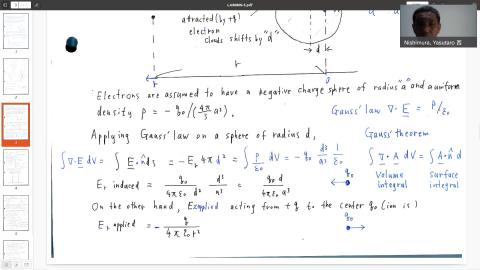 attracted (by +q)
electron
clouds shifts by "d"
d
r
Nishimura, Yasutaro
Electrons are assumed to have a negative charge sphere of radius "a" and a uniform
density ρ = - q₀ /( 4π/3 a³ ).
Gauss' law ∇·E = ρ/ε₀
Applying Gauss' law on a sphere of radius d,
Gauss' theorem
∫∇·E dV = ∫ E·n̂ ds = -Er 4π d² = ∫ ρ/ε₀ dV = -q₀ d³/a³ 1/ε₀
∫ ∇·A dV = ∫ A·n̂ d
Er induced = q₀/(4πε₀ d²) d³/a³ = q₀ d/(4πε₀ a³)
q₀
Volume integral
Surface integral
On the other hand, Eapplied acting from +q to the center q₀ (ion is)
Er applied = - q/(4πε₀ r²)
q₀